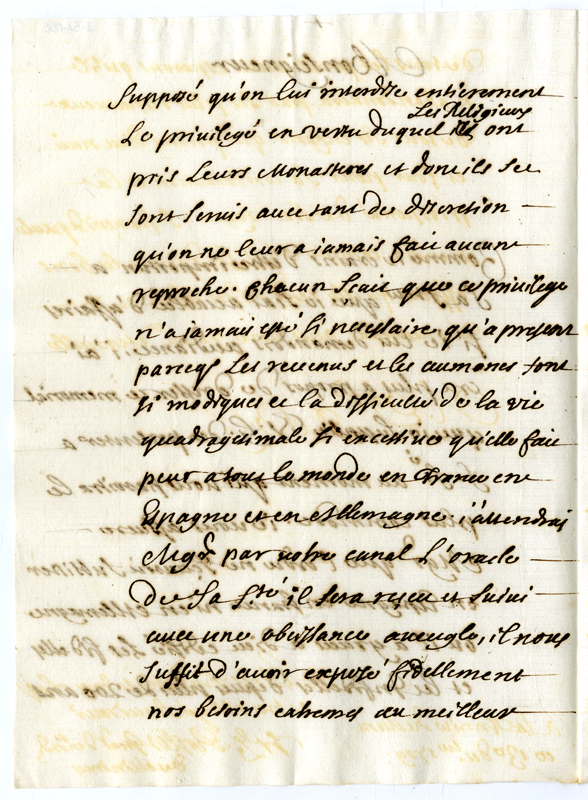 Monseigneur
Supposé qu'on lui interdise entierement
Les Religieux
Le privilege en vertu duquel ont
pris Leurs Monasteres et donc ils se
sont servis avec tant de discretion
qu'on ne leur a jamais fait aucune
reproche. Chacun Scait que ce privilege
n'a jamais esté si necessaire qu'a present
parceq Les revenus et les aumones sont
si modiques et la difficulté de la vie
quadragesimale si excessive qu'elle fait
peur a tout le monde en France en
Espagne et en Allemagne. j'attendrai
Mgr par votre canal L'oracle
De Sa Sté il sera reçeu et suivi
avec une obeissance aveugle, il nous
suffit d'avoir exposé fidellement
nos besoins extremes au meilleur